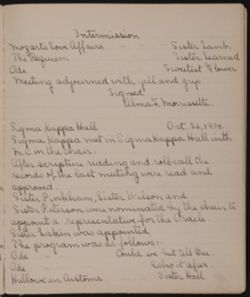 Intermission
Mozarts Love Affairs Sister Lamb.
The Requiem Sister Learned
Ode Sweetest Flower
Meeting adjourned with yell and grip.
Signed
Morrisette.
Sigma Kappa Hall Oct. 26, 1904.
Sigma Kappa met in Sigma Kappa Hall with
M.C. in the Chair.
After scripture reading and roll-call the
records of the last meeting were read and
approved.
Sister Pinkham, Sister Wilson and
Sister Peterson were nominated by the chair to
appoint a representative for the Oracle.
Sister Eakin was appointed.
The program was as follows:-
Ode Could we but tell thee
Ode Echo it afar
Hallowe'en Customs Sister Hall